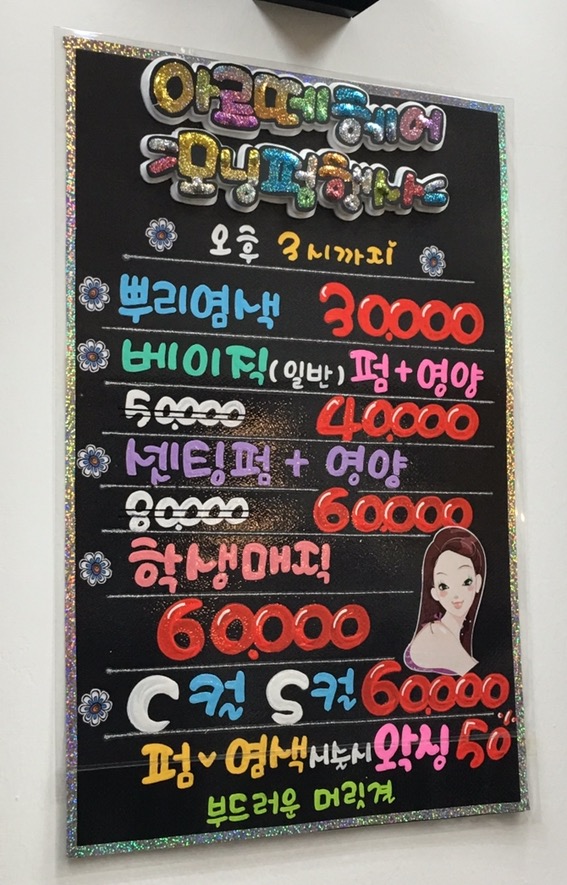 아르떼헤어
모닝펌행사
오후 3시까지
뿌리염색 30,000
베이직(일반)펌+영양
50,000 40,000
셋팅펌+영양
80,000 60,000
학생매직
60,000
C컬 S컬 60,000
펌♥염색시술시왁싱50%
부드러운 머릿결